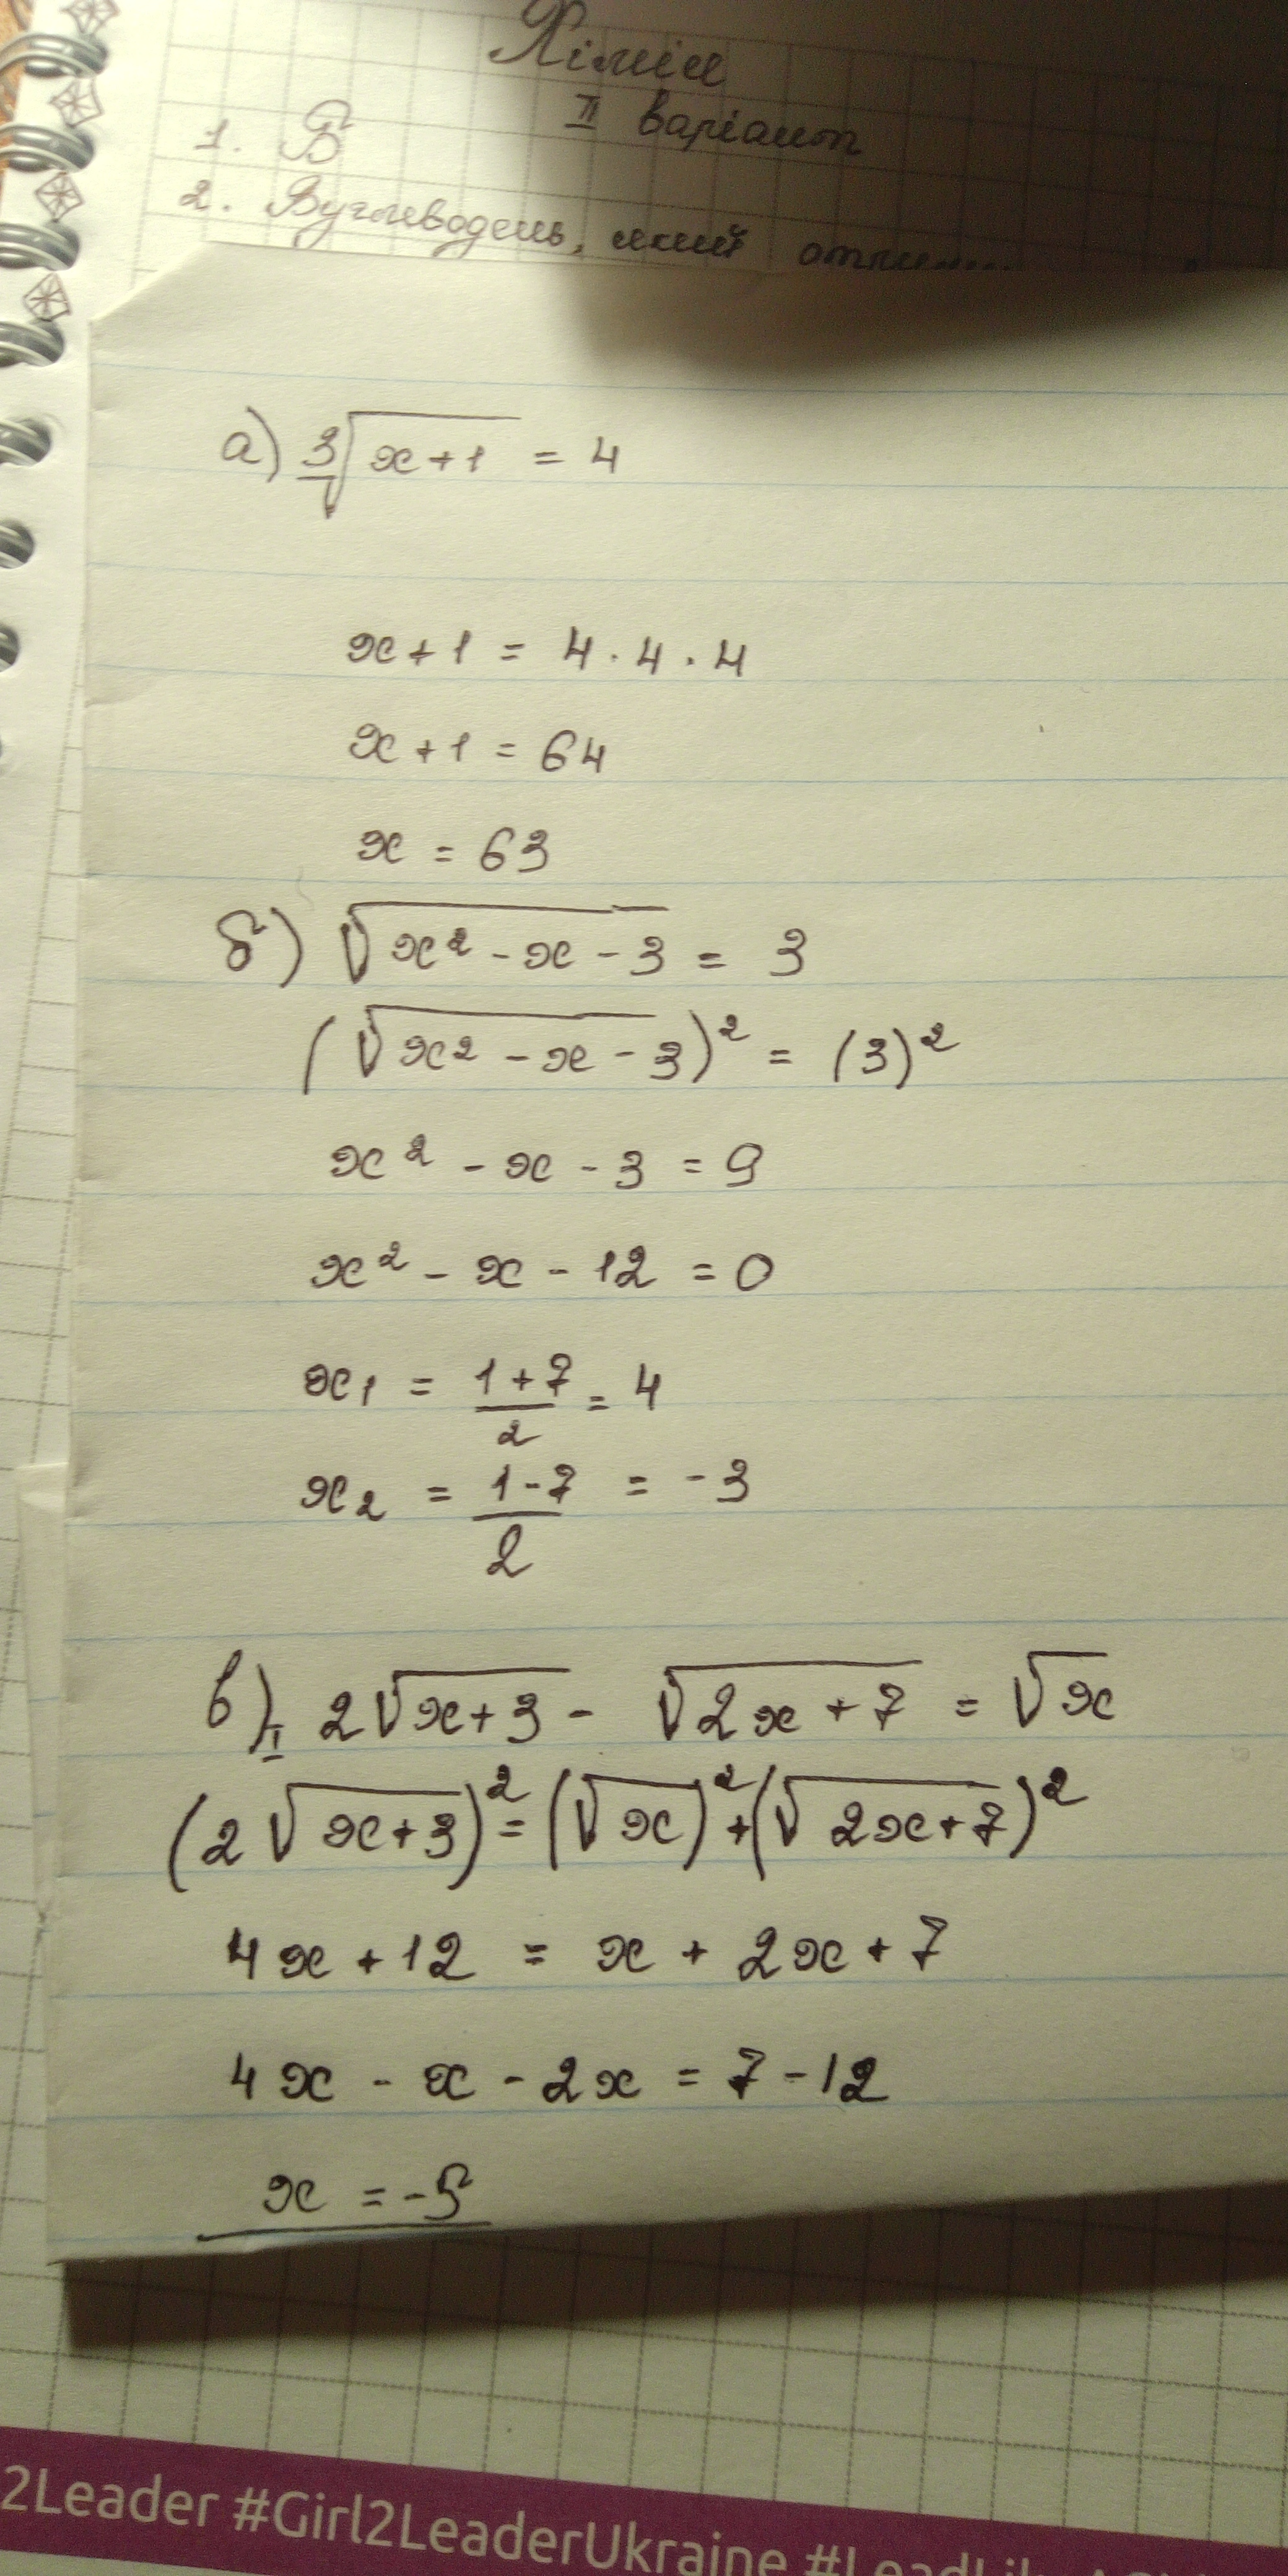 Хімія
II варіант
1. Б
2. Вуглеводень, який
а) ∛(x+1) = 4
x+1 = 4·4·4
x+1 = 64
x = 63
б) √(x²-x-3) = 3
(√(x²-x-3))² = (3)²
x²-x-3 = 9
x²-x-12 = 0
x₁ = (1+7)/2 = 4
x₂ = (1-7)/2 = -3
в) 2√(x+3) - √(2x+7) = √x
(2√(x+3))² = (√x)² + (√(2x+7))²
4x+12 = x+2x+7
4x-x-2x = 7-12
x = -5
2Leader #Girl2LeaderUkraine